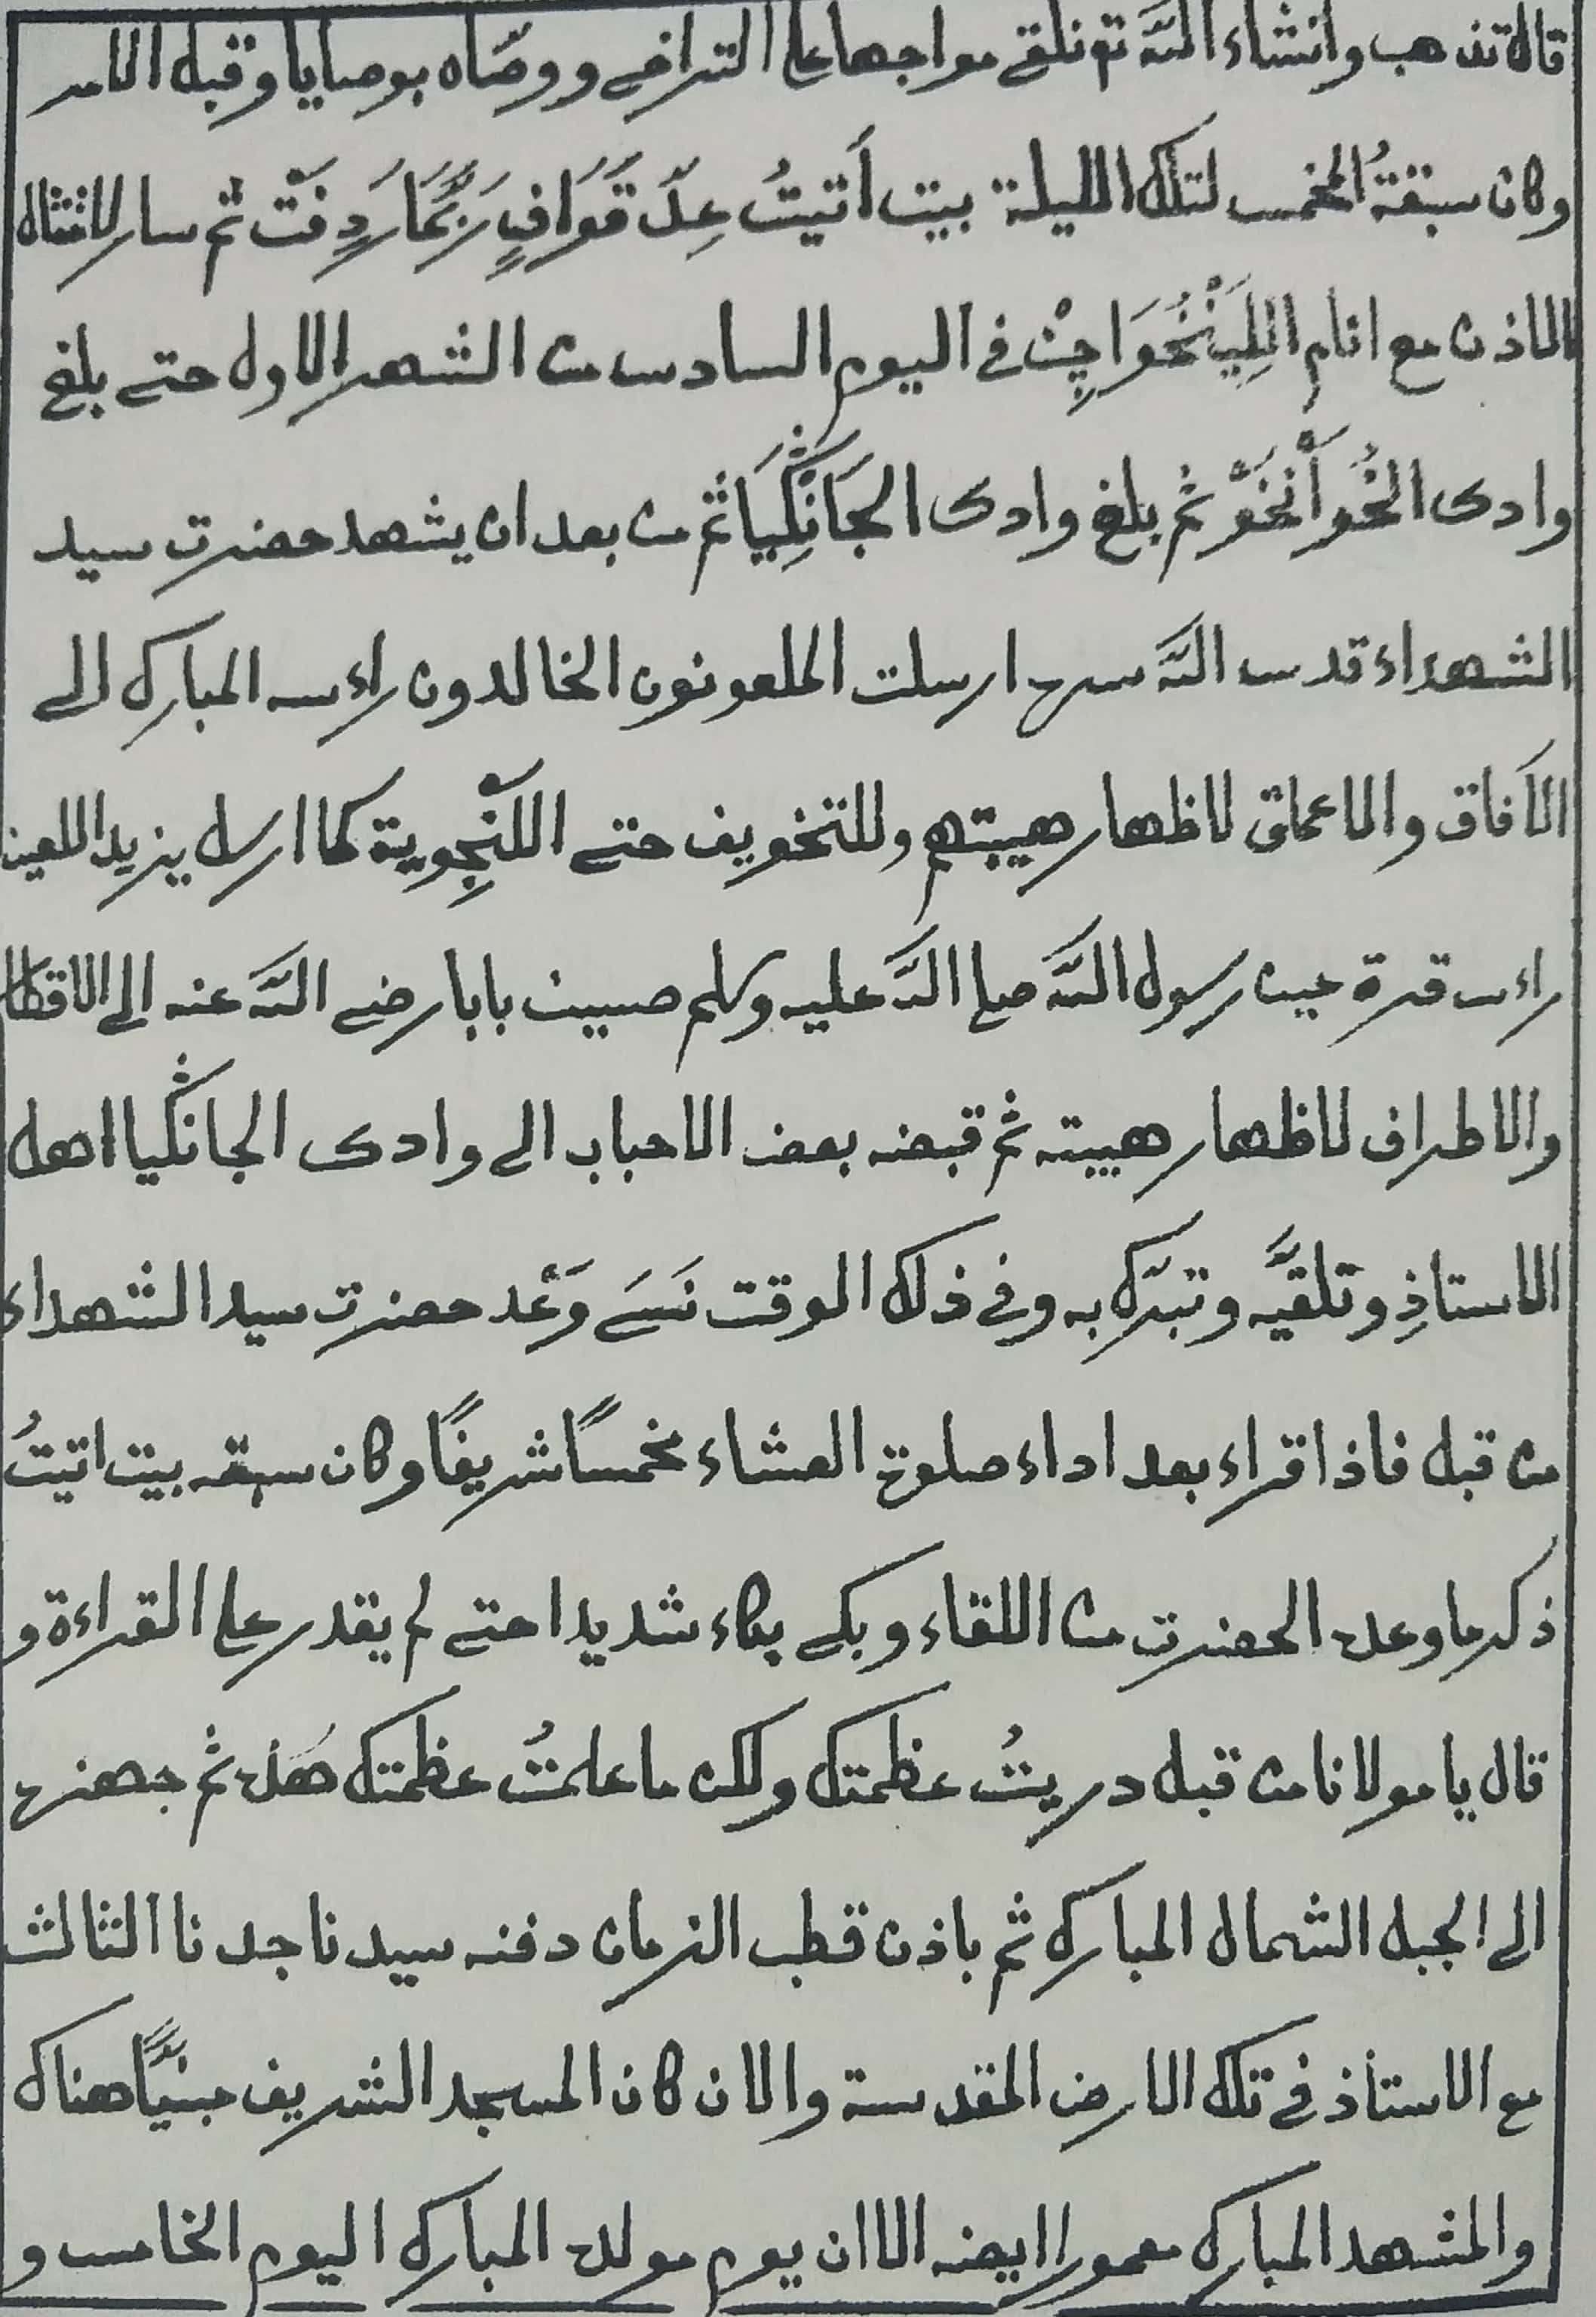 قال تذهب وانشاء الله تع نلقے مواجها علے التراضے ووصّاه بوصايا وقبل الامر
وكان سبقةُ المخمس لتلك الليلة بيت اَتيتُ عِدّ قَوَافٍ رَبَّمَا رَدِفَتْ ثم سار لامتثال
الاذن مع انام اللِيَنْخُوَاجِنْ فے اليوم السادس من الشهر الاول حتے بلغ
وادى الخُوَاَنْخَوَّ ثم بلغ وادى الجَانْكِيَا ثم من بعد ان يشهد حضرت سيد
الشهداء قدس الله سره ارسلت الملعونون الخالدون راءسه المبارك الے
الآفاق والاعماق لاظهار هيبتهم وللتخويف حتے اللَنْجِوية كما ارسل يزيد اللعين
راءس قرة عين رسول الله صلے الله عليه وسلم حسين بابا رضے الله عنه الى الاقطار
والاطراف لاظهار هيبته ثم قبضه بعض الاحباب الے وادى الجانكيا اهل
الاستاذِ وتلقيَّه وتبرّك به وفے ذلك الوقت نَسَے وَعْد حضرت سيد الشهداء
من قبل فاذا قراء بعد اداء صلوة العشاء مخمسًا شريفًا وكان سبقه بيت اتيتُ
ذكر ما وعده الحضرت من اللقاء وبكے بكاء شديدا حتے لم يقدر علے القراءة و
قال يا مولانا من قبل دريتُ عظمتك ولكن ما علمتُ عظمتك هَذه ثم جهزه
الى الجبل الشمال المبارك ثم باذن قطب الزمان دفنه سيدنا جدنا الثالث
مع الاستاذ فے تلك الارض المقدسة والان كان المسجد الشريف مبنيًّا هناك
والمشهد المبارك معمورا ايضه الاان يوم مولده المبارك اليوم الخامس و